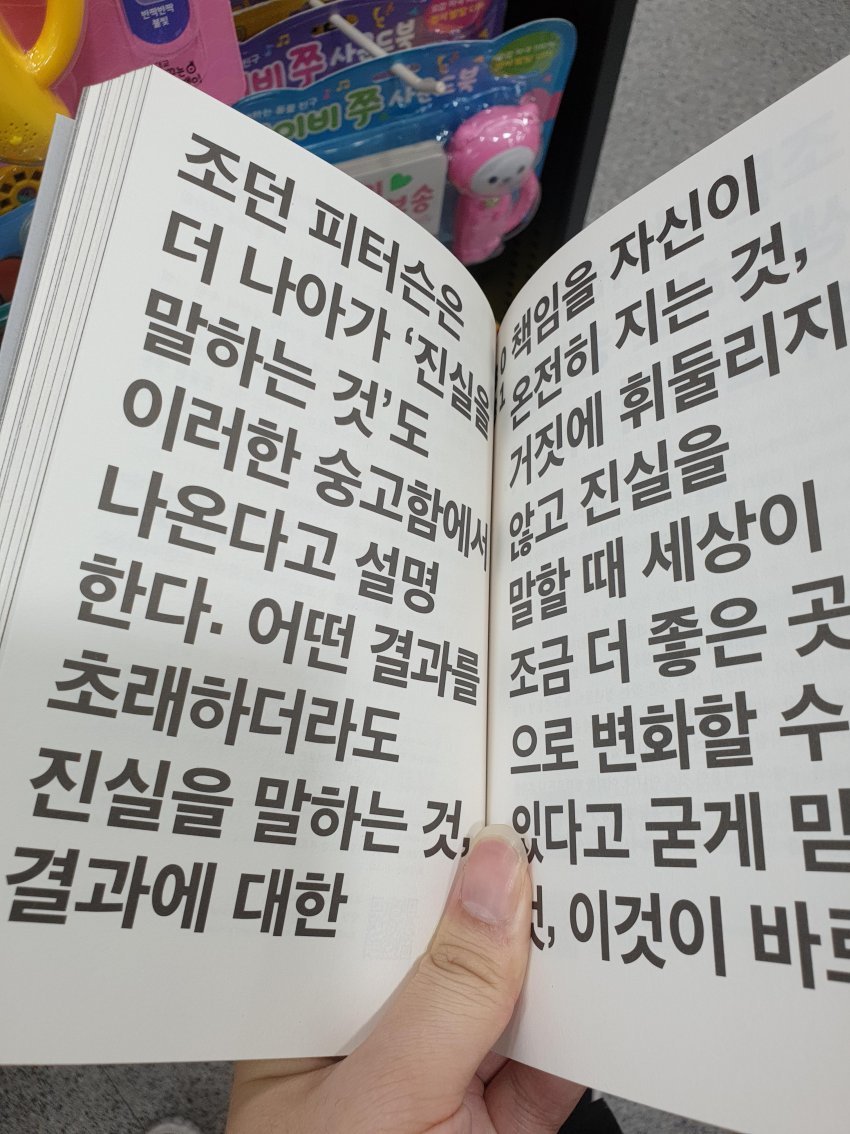 반짝반짝
불빛
비 쭈 사운드북
이비 쭈 사운드북
조던 피터슨은
더 나아가 ‘진실을
말하는 것’도
이러한 숭고함에서
나온다고 설명
한다. 어떤 결과를
초래하더라도
진실을 말하는 것,
결과에 대한
책임을 자신이
온전히 지는 것,
거짓에 휘둘리지
않고 진실을
말할 때 세상이
조금 더 좋은 곳
으로 변화할 수
있다고 굳게 믿
것, 이것이 바로